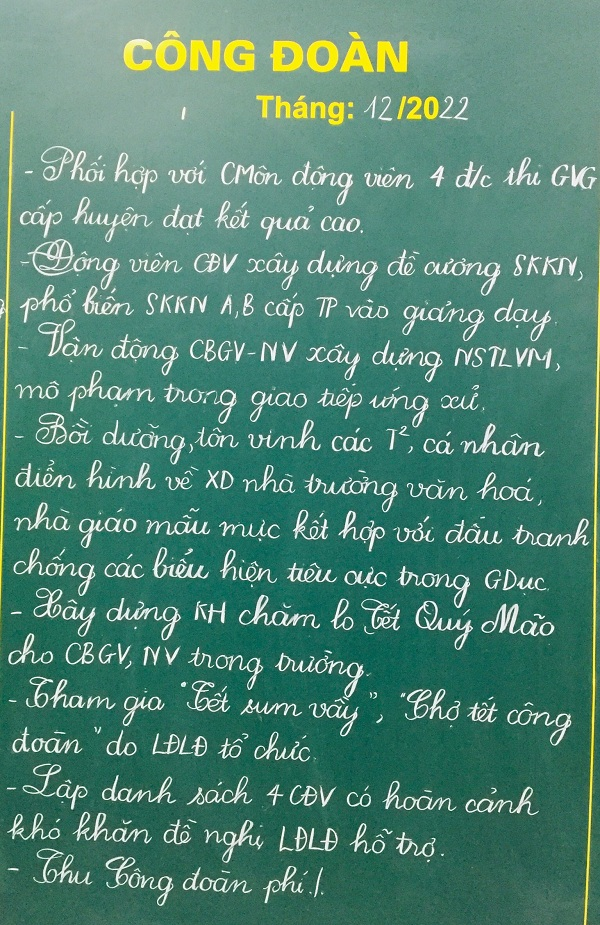 CÔNG ĐOÀN
Tháng: 12/2022
- Phối hợp với CMôn động viên 4 đ/c thi GVG
cấp huyện đạt kết quả cao.
- Động viên CĐV xây dựng đề cương SKKN,
phổ biến SKKN A,B cấp TP vào giảng dạy.
- Vận động CBGV-NV xây dựng NSTLVM,
mô phạm trong giao tiếp ứng xử.
- Bồi dưỡng, tôn vinh các T², cá nhân
điển hình về XD nhà trường văn hoá,
nhà giáo mẫu mực kết hợp với đấu tranh
chống các biểu hiện tiêu cực trong GDục.
- Xây dựng KH chăm lo Tết Quý Mão
cho CBGV, NV trong trường.
- Tham gia "Tết sum vầy", "Chợ tết công
đoàn" do LĐLĐ tổ chức.
- Lập danh sách 4 CĐV có hoàn cảnh
khó khăn đề nghị LĐLĐ hỗ trợ.
- Thu Công đoàn phí./.